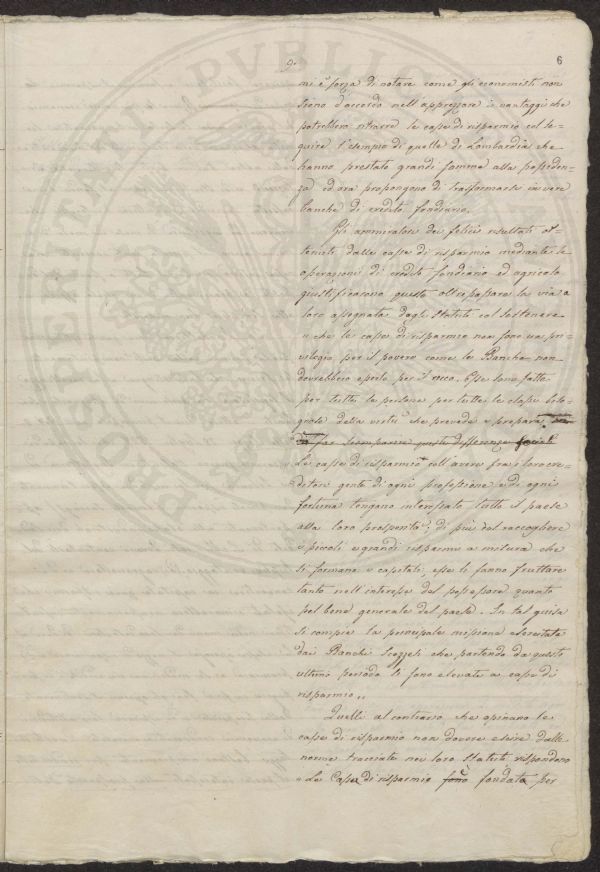 9.
6
mi è forza di notare come gli economisti non
siano d'accordo nell'apprezzare i vantaggi che
potrebbero ritrarre le casse di risparmio col se=
guire l'esempio di quelle di Lombardia che
hanno prestato grandi somme alla possiden=
za ed ora propongono di trasformarsi in vere
banche di credito fondiario.
Gli ammiratori dei felici risultati ot=
tenuti dalle casse di risparmio mediante le
operazioni di credito fondiario ed agricolo
giustificarono questo oltrepassare la via a
loro assegnata dagli Statuti col sostenere
che le casse di risparmio non sono un pri=
vilegio per il povero come le Banche non
dovrebbero esserlo per il ricco. Esse sono fatte
per tutte le persone per tutte le classi
della virtù che prevede e prepara
far scomparire queste differenze sociali
Le casse di risparmio coll'avere fra i loro cre=
ditori gente di ogni professione e di ogni
fortuna tengono interessato tutto il paese
alla loro prosperità; di più col raccogliere
i piccoli e grandi risparmi a misura che
si formano i capitali, esse li fanno fruttare
tanto nell'interesse del possessore quanto
pel bene generale del paese. In tal guisa
si compie la principale missione esercitata
dai Banchi Scozzesi che partendo da questo
ultimo periodo si sono elevate a casse di
risparmio„
Quelli al contrario che opinano le
casse di risparmio non dovere escire dalle
norme tracciate nei loro Statuti rispondono
„Le Casse di risparmio sono fondate per